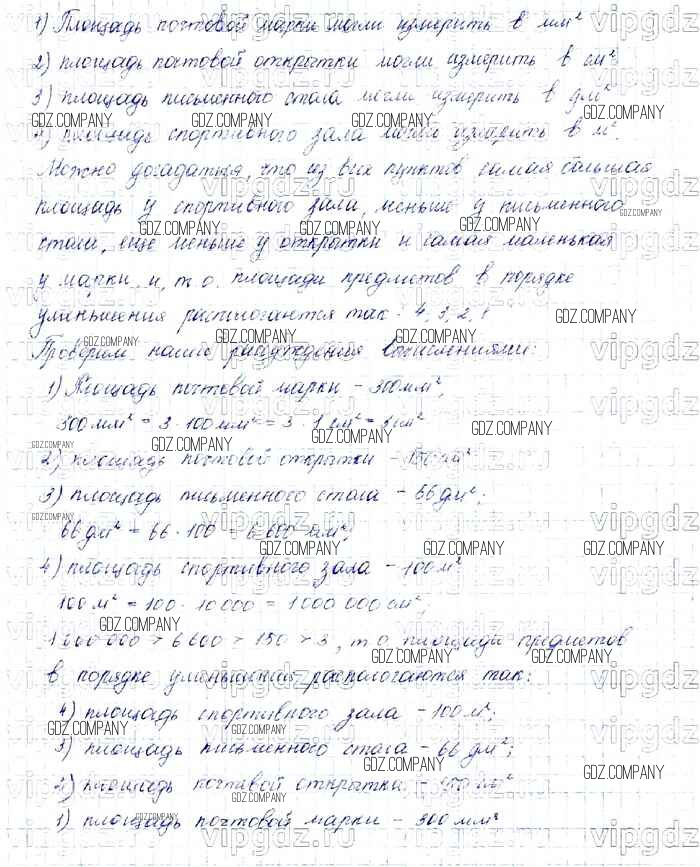 1) Площадь почтовой марки могли измерить в мм²
2) площадь почтовой открытки могли измерить в см²
3) площадь письменного стола могли измерить в дм²
4) площадь спортивного зала могли измерить в м².
Можно догадаться, что из всех пунктов самая большая
площадь у спортивного зала, меньше у письменного
стола, еще меньше у открытки и самая маленькая
у марки. и, т о. площади предметов в порядке
уменьшения располагаются так: 4, 3, 2, 1
Проверим наши рассуждения вычислениями:
1) Площадь почтовой марки - 300 мм²,
300 мм² = 3 · 100 мм² = 3 · 1 см² = 3 см²
2) площадь почтовой открытки - 150 см²
3) площадь письменного стола - 66 дм²;
66 дм² = 66 · 100 = 6 600
4) площадь спортивного зала - 100 м²
100 м² = 100 · 10 000 = 1 000 000 см²;
1 000 000 > 6 600 > 150 > 3, т о. площади предметов
в порядке уменьшения располагаются так:
4) площадь спортивного зала - 100 м²;
3) площадь письменного стола - 66 дм²;
2) площадь почтовой открытки - 150 см²
1) площадь почтовой марки - 300 мм²
vipgdz.ru
GDZ.COMPANY